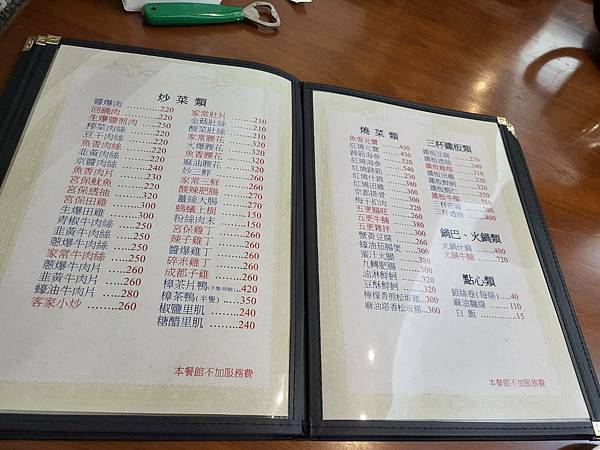 炒菜類
醬爆肉 220
回鍋肉 220
生爆鹽煎肉 220
榨菜肉絲 250
豆干肉絲 220
魚香肉絲 220
韭黃肉絲 220
京醬肉絲 240
魚香肉片 220
宮保魷魚
宮保透抽 320
宮保田雞 300
生爆田雞 300
青椒牛肉絲 250
韭黃牛肉絲 250
蔥爆牛肉絲 250
家常牛肉絲 250
蔥爆牛肉片 260
韭黃牛肉片 260
蠔油牛肉片 280
客家小炒 260
家常肚片 210
金菇肚絲 210
酸菜肚絲 210
家常腰花 320
火爆腰花 320
魚香腰花 320
麻油腰花 320
炒三鮮 260
家常三鮮 260
酸辣肥腸 270
薑絲大腸 270
螞蟻上樹 150
粉絲肉末 150
宮保雞丁 260
辣子雞丁 260
醬爆雞丁 260
碎米雞丁 260
成都子雞 260
樟茶片鴨 420
樟茶鴨(半隻) 350
椒鹽里肌 240
糖醋里肌 240
本餐館不加服務費
燒菜類
魚香元寶 430
紅燒元寶 450
蹄筋海參
紅燒海參
紅燒蹄筋
紅燒什錦
紅燒田雞
京都排骨 300
梅干扣肉 300
五更腸旺 220
五更牛腩
五更雜拌 300
蟹黃豆腐 300
蠔油茄腸煲 300
蜜汁火腿 300
九轉肥腸 300
油淋鮮蚵 300
豆酥鮮蚵 300
檸檬香煎松坂豬 300
麻油塔香松坂豬 300
三杯鐵板類
鐵板豆腐 270
鐵板透抽
鐵板雞柳 310
鐵板田雞
鐵板鮮蚵
鐵板蝦仁 350
鐵板牛柳
三杯田雞
三杯透抽 400
鍋巴、火鍋類
火鍋什錦 400
火鍋牛腩 720
點心類
銀絲卷(每條) 40
麻油麵線 110
白飯 15
本餐館不加服務費